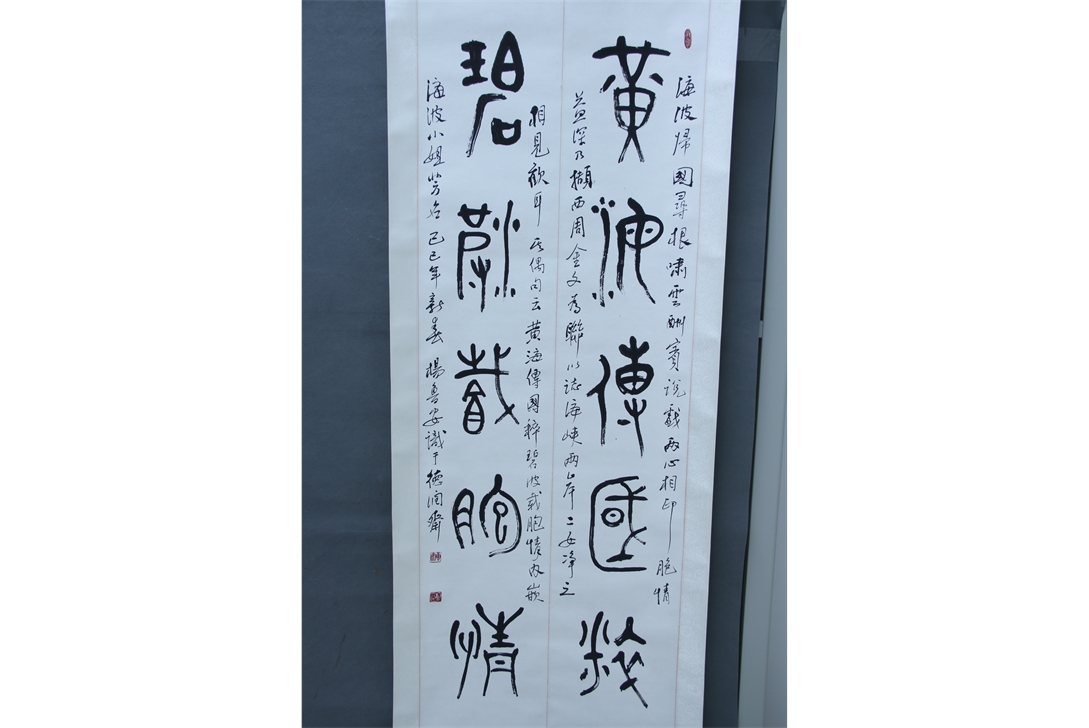 海波歸國尋根嘯雲酬賓說戲兩心相印胞情
黃海傳國粹
益深乃擷西周金文為聯以誌海峽兩岸二女淨之
相見歡耳其偶句云黃海傳國粹碧波載胞情內嵌
碧波載胞情
海波小姐芳名己巳年新春楊魯安識于德潤齋